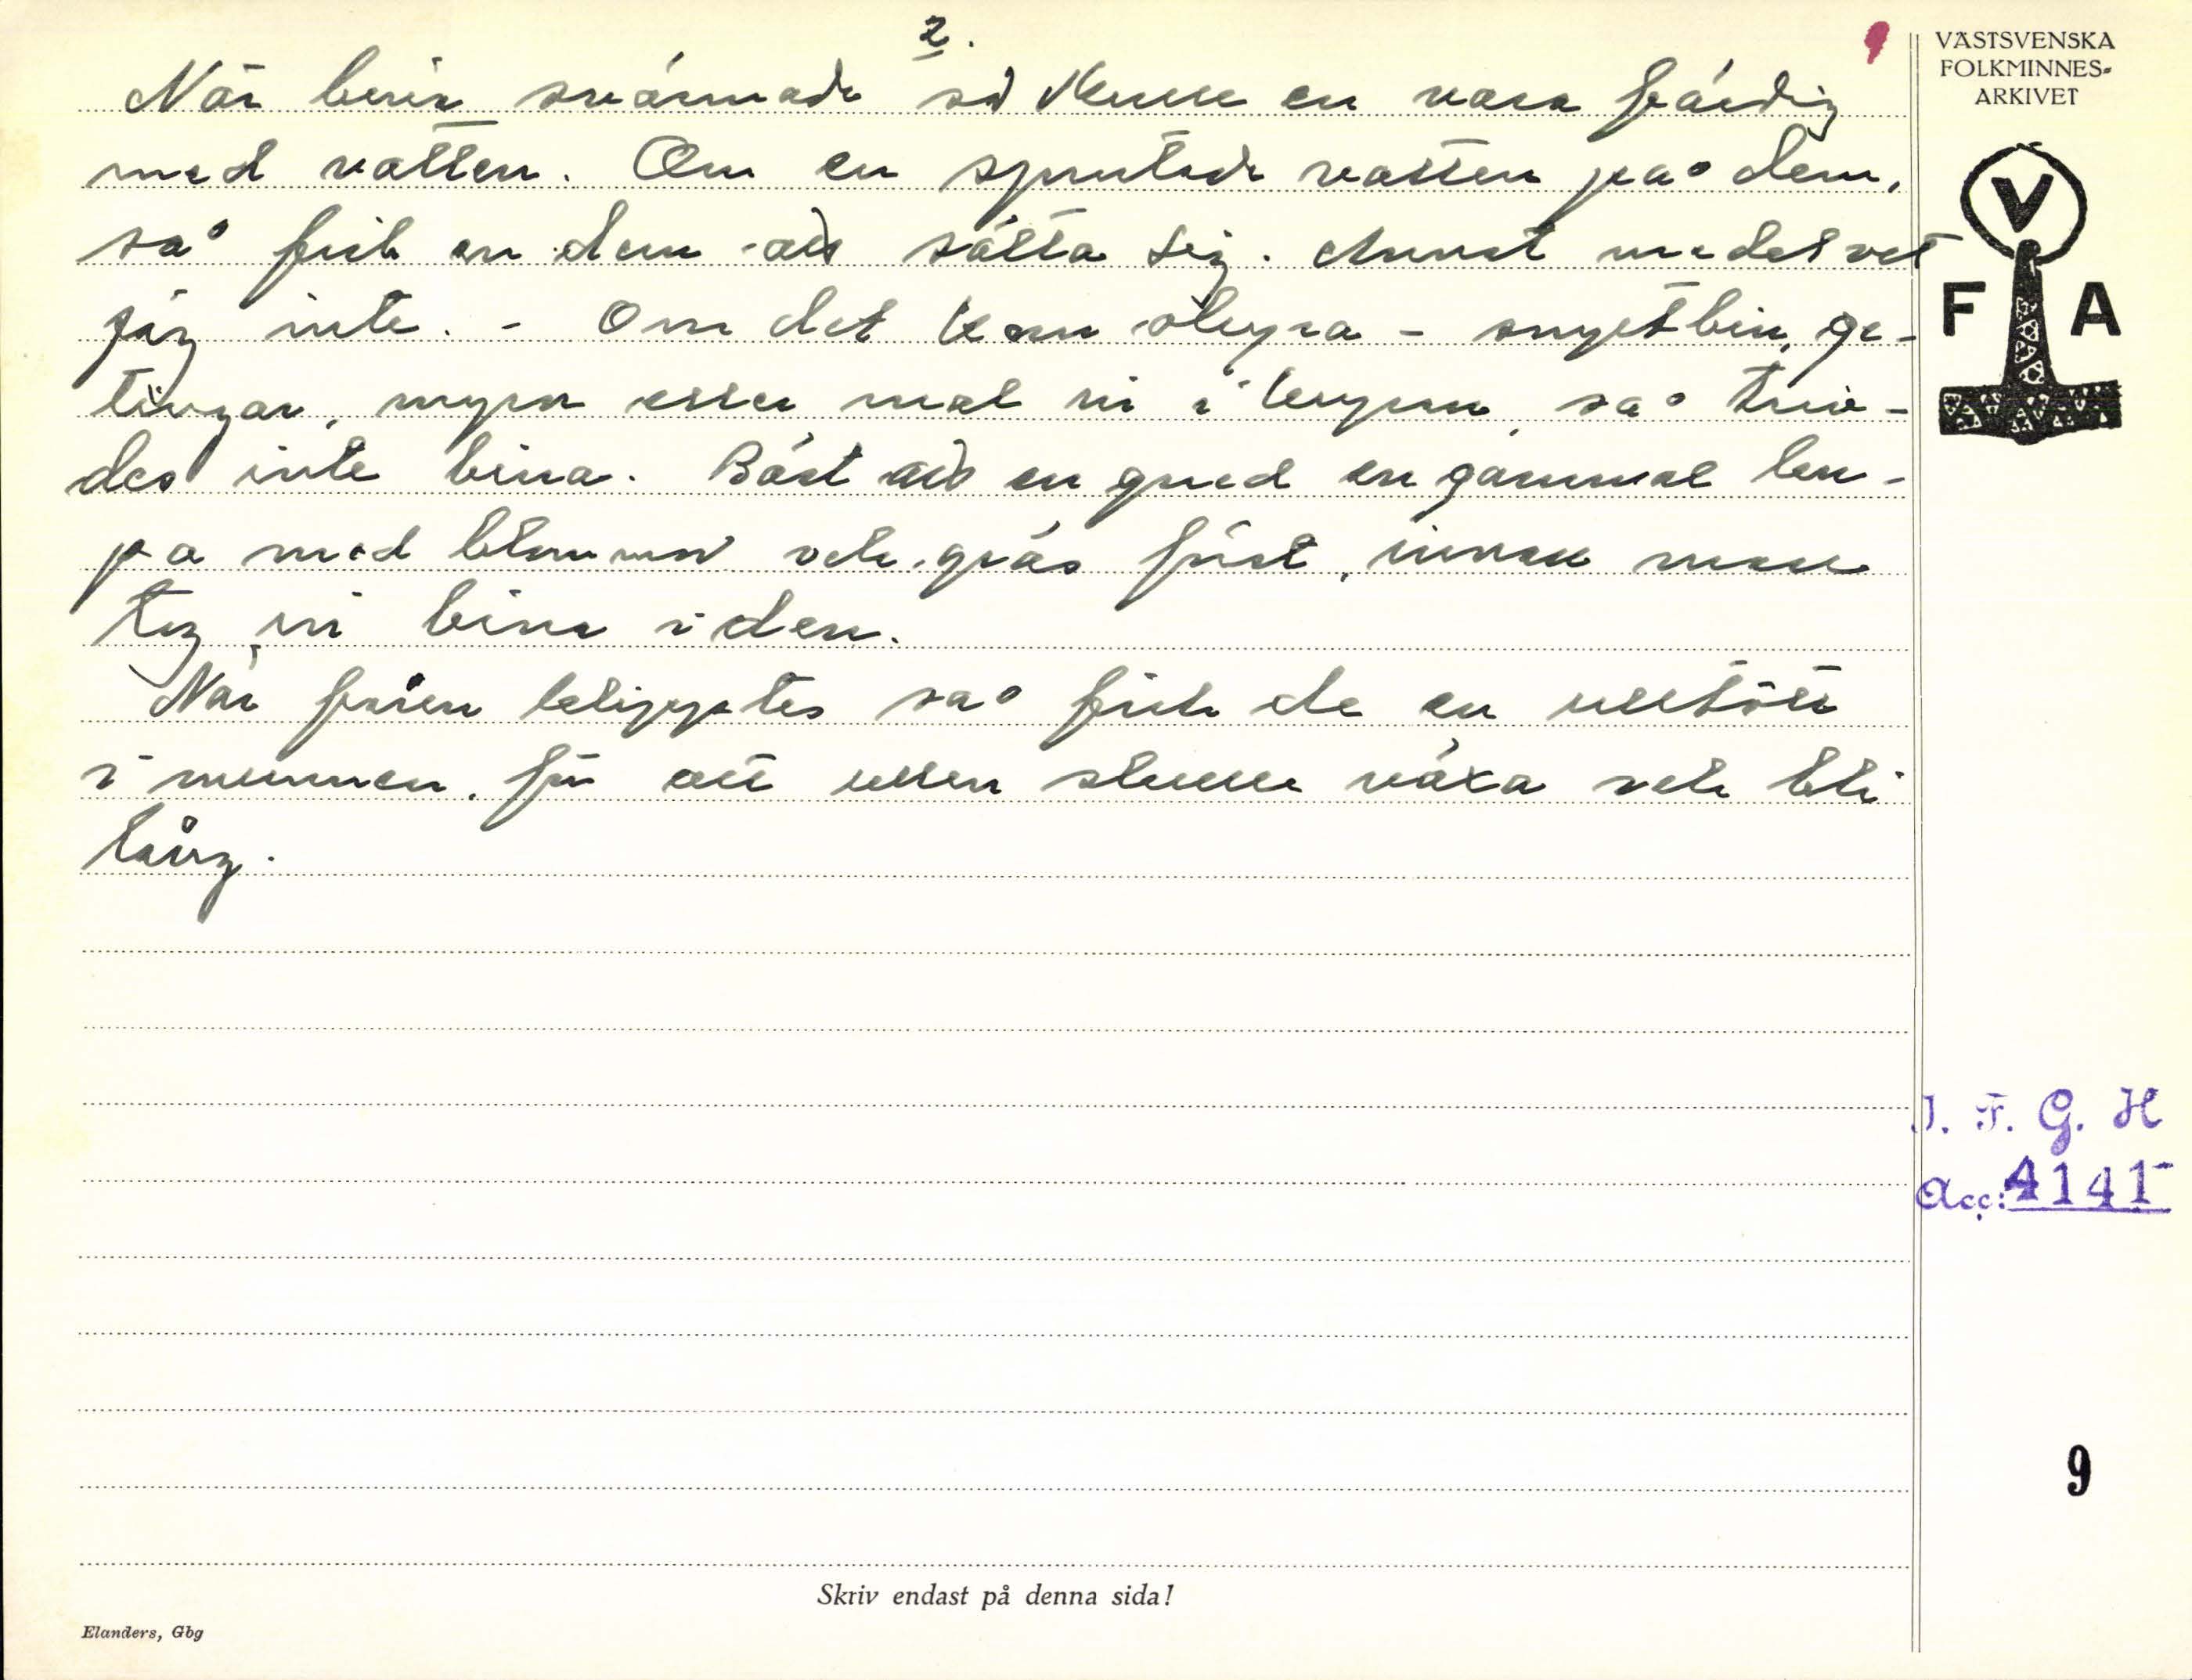 2.
När bina svärmade så skulle en vara färdig
med vatten. Om en sprutade vatten på dem,
så fick en dem att sätta sig. Annat medel vet
jag inte. - Om det kom olegra - snyltbin, ge-
tingar, myra eller mal in i kupan, så triv-
des inte bina. Bäst att en gned en gammal ku-
pa med blommor och gräs först, innan man
tog in bina i den.
När fåren klipptes så fick de en ulltott
i munnen, för att ullen skulle växa och bli
lång.
VÄSTSVENSKA
FOLKMINNES-
ARKIVET
V
F A
I. F. G. H
Acc: 4141
9
Skriv endast på denna sida!
Elanders, Gbg